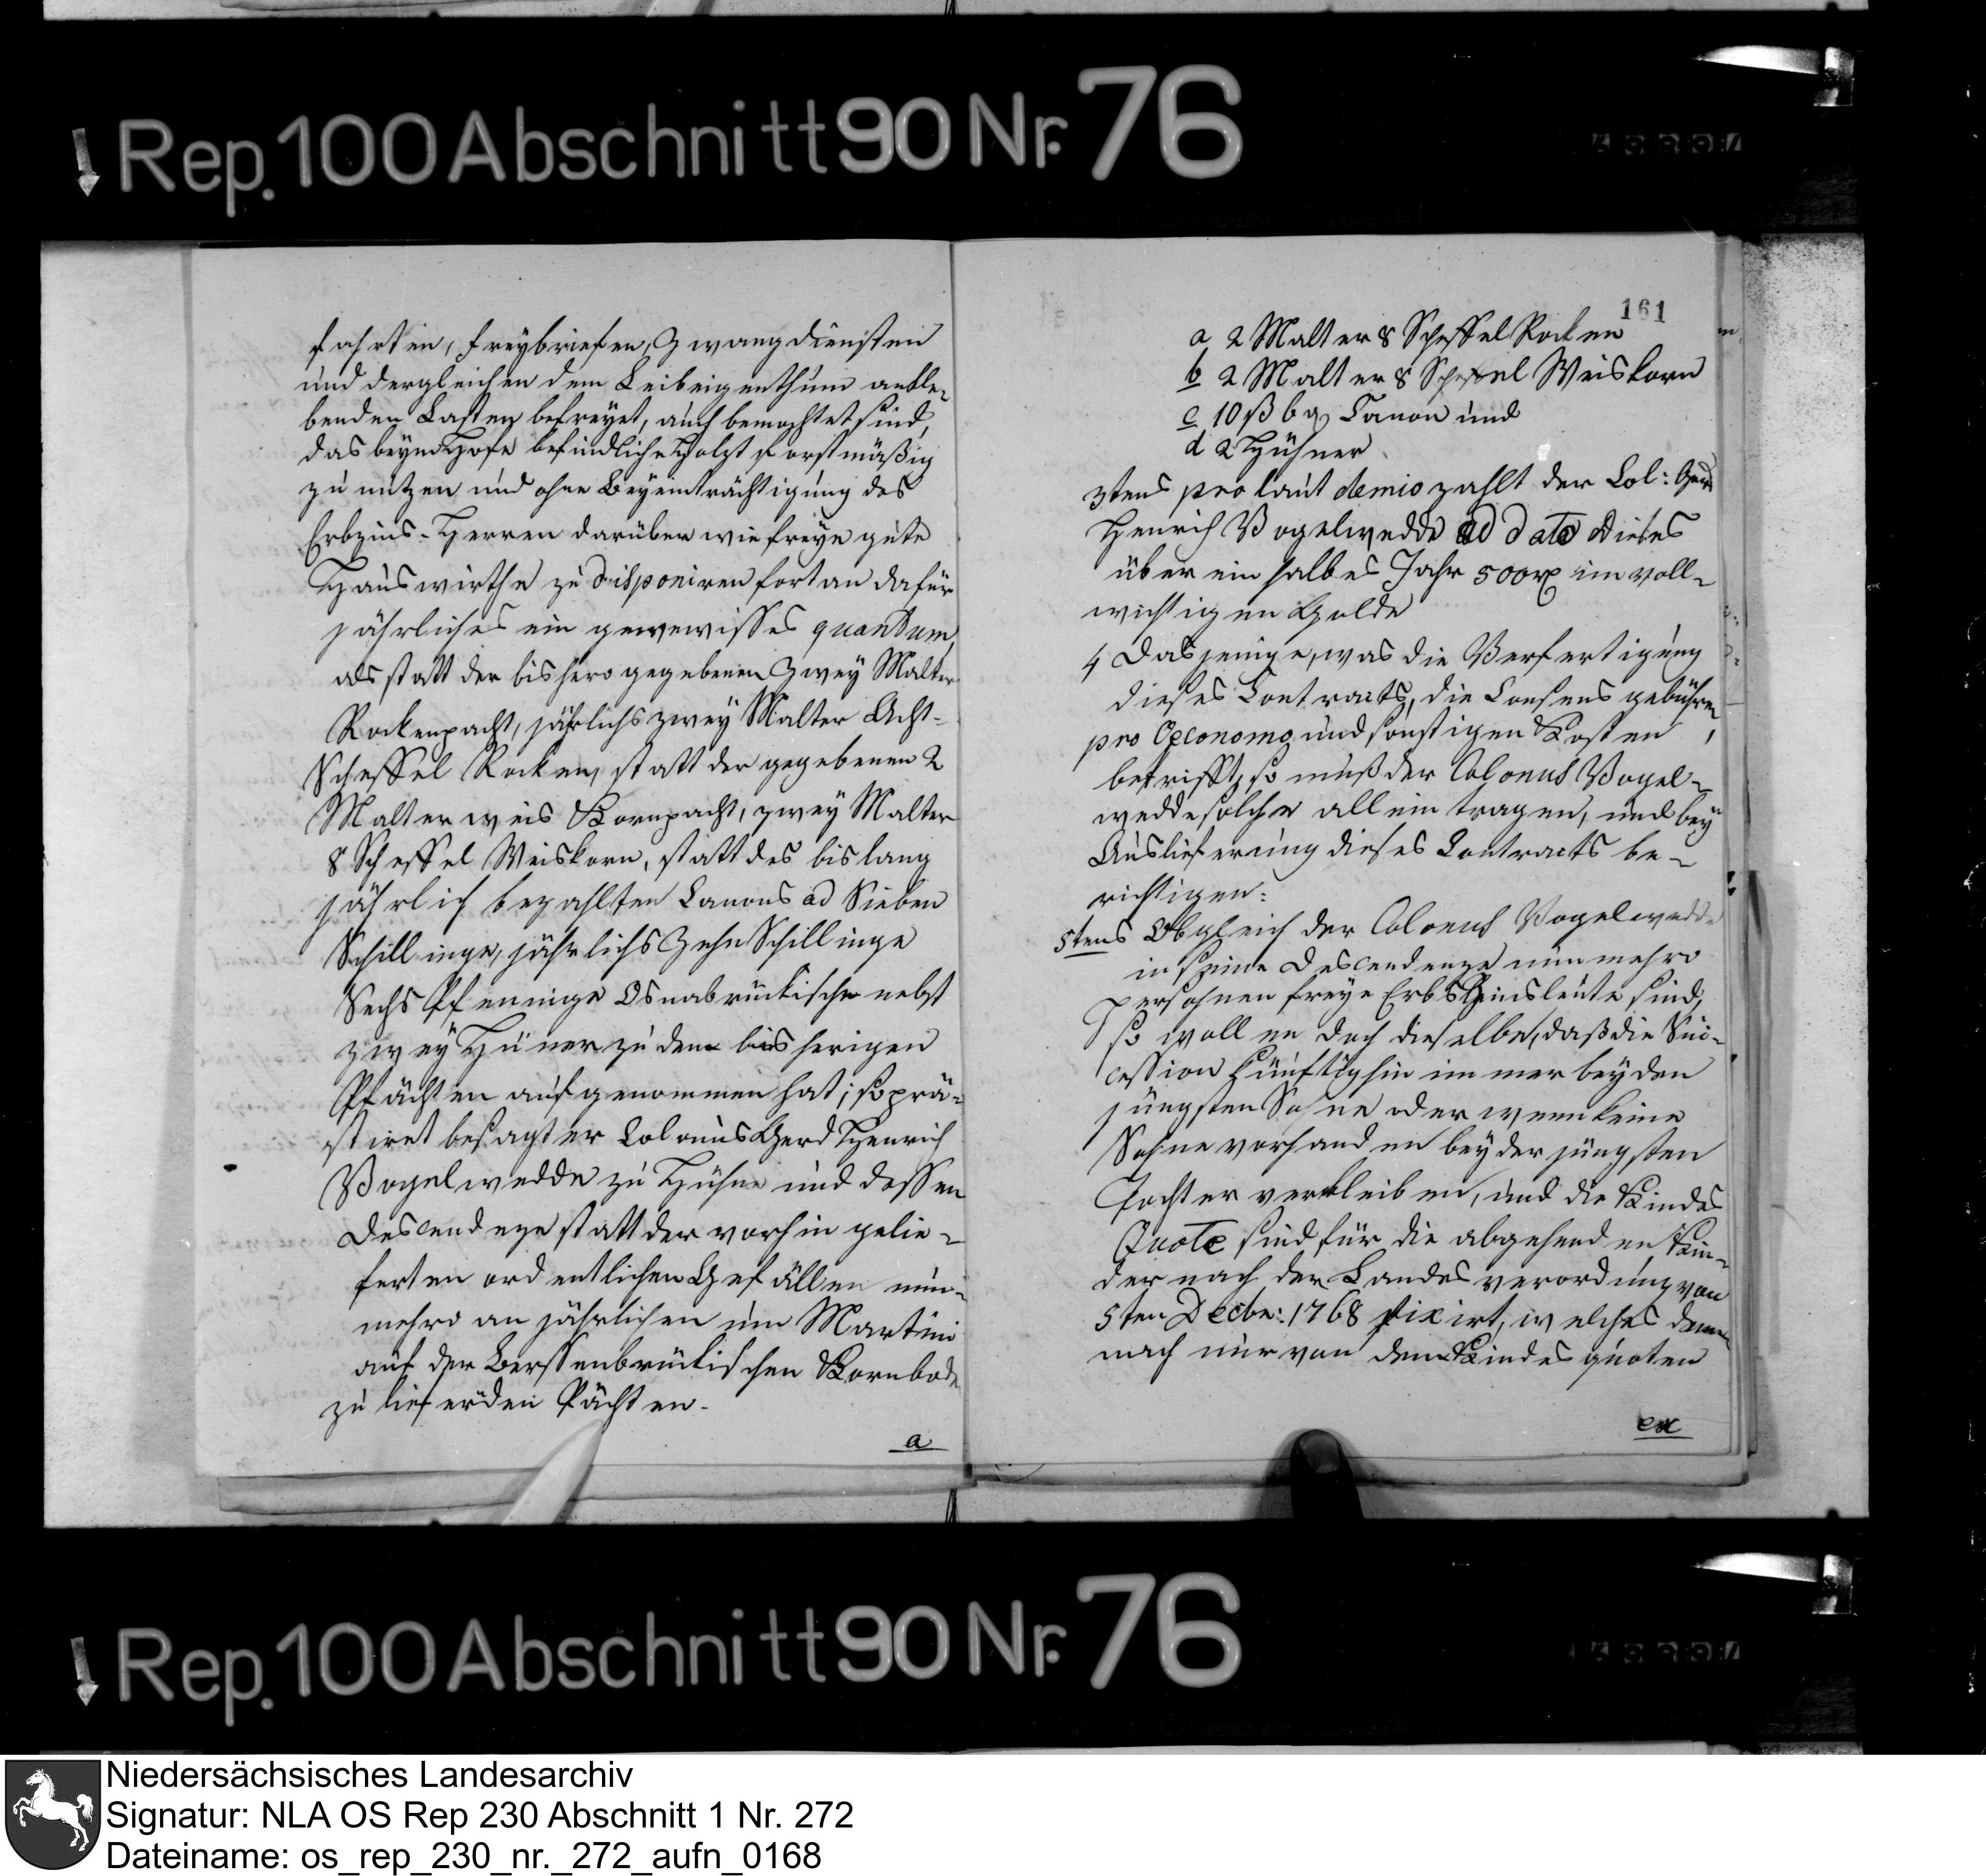 Rep. 100 Abschnitt 90 Nr. 76
fahrten, Freybriefen, Zwangdiensten
und dergleichen dem Leibeigenthum ankle-
benden Lasten befreyet, auch bemachtet sind,
das beym Hofe befindliche Holzt forstmäßig
zu nutzen und ohne Beyeinträchtigung des
Erbzins-Herren darüber wie freye gute
Hauswirthe zu disponiren fortan dafür
jährliches ein gewewisses quantum,
als statt der bishero gegebenen Zwey Malter
Rockenpacht, jährlichs zwey Malter Acht-
Scheffel Rocken, statt der gegebenen 2
Malter weis Kornpacht, zwey Malter
8 Scheffel Weiskorn, statt des bislang
jährlich bezahlten Canons ad Sieben
Schillinge, jährlichs Zehn Schillinge
Sechs Pfenninge Osnabrückische nebst
zwey Hüner zu dem bisherigen
Pfächten aufgenommen hat; so prä-
stiret besagter Colonus Gerd Henrich
Vogelwedde zu Hühne und dessen
Descendenze statt der vorhin gelie-
ferten ordentlichen Gefällen nun-
mehro an jährlichen um Martini
auf der Berssenbrückischen Kornbode
zu lieferden Pächten.
a
161
a 2 Malter 8 Scheffel Rocken
b 2 Malter 8 Scheffel Weiskorn
c 10 ß 6 d Canon und
d 2 Hühner
3tens pro laudemio zahlt der Col: Gerd
Henrich Vogelwedde ad dato dieses
über ein halbes Jahr 500 rp im voll-
wichtigen Golde
4 Dasjenige, was die Verfertigung
dieses Contracts, die Consens gebühren,
pro Oeconomo und sonstigen Kosten
betrifft, so muß der Colonus Vogel-
wedde solche allein tragen, und bey
Auslieferung dieses Contracts be-
richtigen.
5tens Obgleich der Colonus Vogelwedde
in seine Descendenze nunmehro
persohnen freye Erbs Zinsleute sind,
so wollen doch dieselbe, daß die Suc-
cession künftighin immer bey den
jüngsten Sohne oder wenn keine
Sohne vorhanden bey der jüngsten
Tochter verbleiben, und die Kindes
Quote sind für die abgehenden Kin-
der nach der Landesverordnung von
5ten Decbr: 1768 fixirt, welches dem-
nach nur von dem Kindes quoten
ex
Rep. 100 Abschnitt 90 Nr. 76
Niedersächsisches Landesarchiv
Signatur: NLA OS Rep 230 Abschnitt 1 Nr. 272
Dateiname: os_rep_230_nr._272_aufn_0168